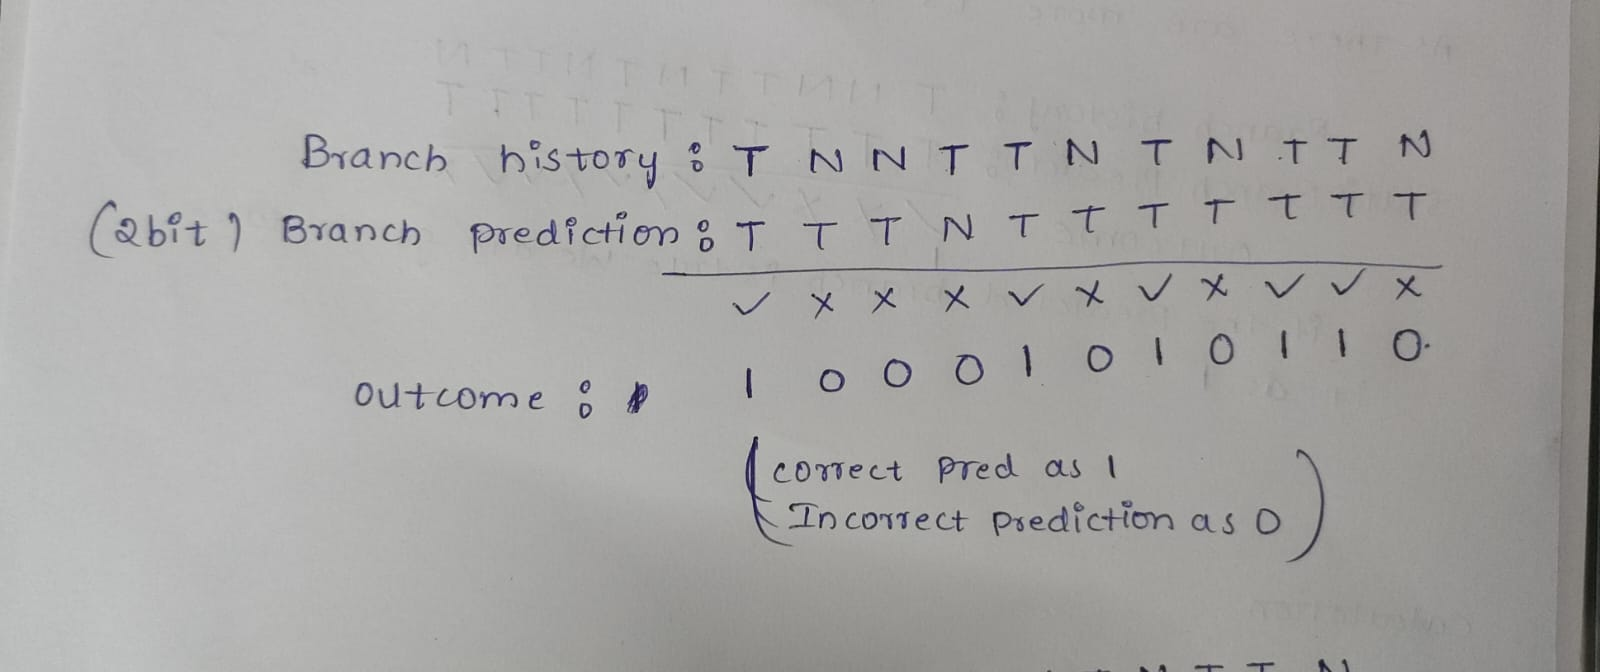 Branch history : T N N T T N T N T T N
(2bit) Branch prediction : T T T N T T T T T T T
✓ x x x ✓ x ✓ x ✓ ✓ x
outcome : 1 0 0 0 1 0 1 0 1 1 0.
(correct pred as 1
Incorrect prediction as 0)